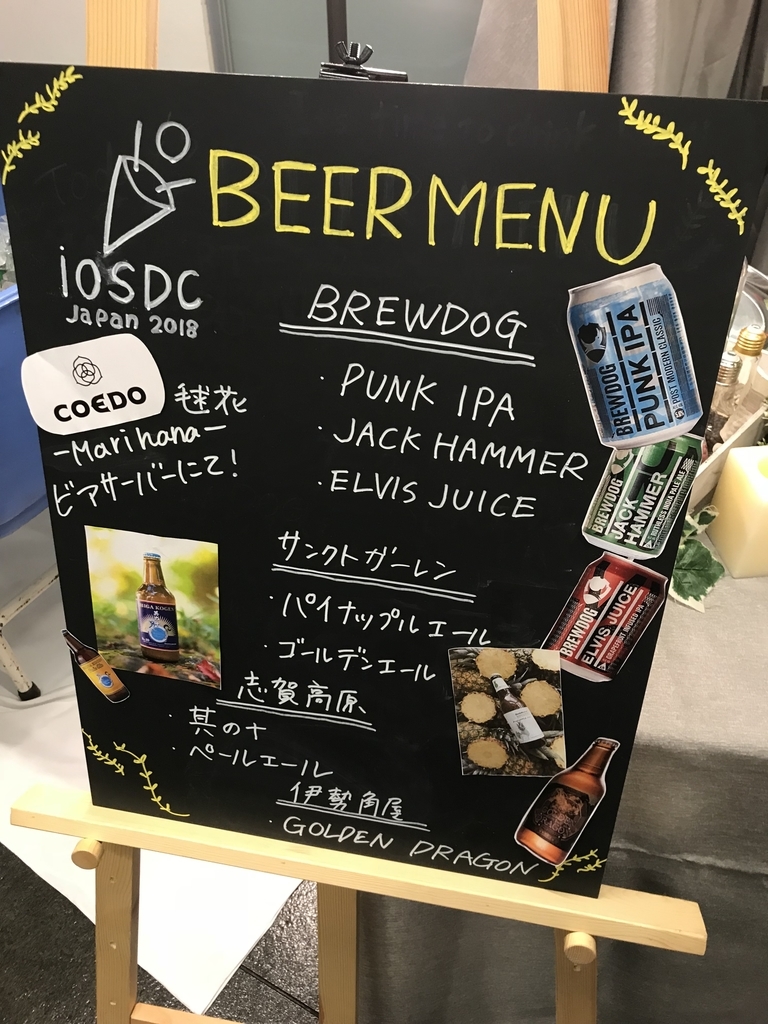 BEER MENU
iOSDC
Japan 2018
COEDO
毬花
-Marihana-
ビアサーバーにて!
BREWDOG
・PUNK IPA
・JACK HAMMER
・ELVIS JUICE
サンクトガーレン
・パイナップルエール
・ゴールデンエール
志賀高原
・其の十
・ペールエール
伊勢角屋
・GOLDEN DRAGON
BREWDOG
PUNK IPA
POST MODERN CLASSIC
BREWDOG
JACK
HAMMER
RUTHLESS INDIA PALE ALE
BREWDOG
ELVIS JUICE
GRAPEFRUIT INFUSED IPA
SHIGA KOGEN